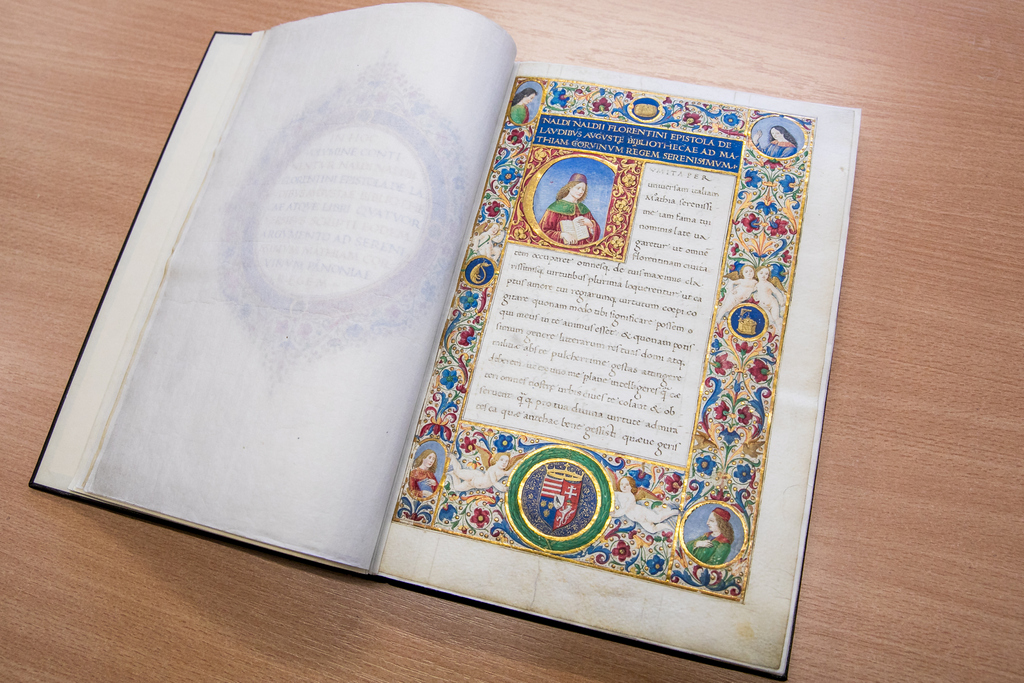 NALDI NALDII FLORENTINI EPISTOLA DE
LAVDIBVS AVGVSTE BIBLIOTHECAE AD MA-
THIAM CORVINVM REGEM SERENISSIMVM.
VNITA PER
universam italiam
Mathia serenissi
me iam fama tui
nominis late va
garetur ut omnē
florentinam civita
tem occuparet omnesq; de tuis maximis cla
rissimisq; virtutibus plurima loquerentur ut ca
ptus amore tui regiarumq; virtutum coepi co
gitare quonam modo tibi significare possem
qui meus in te animus esset & quonam potis
simum genere litterarum res tuas domi atq;
militiae abs te pulcherrime gestas attingere
deberem ut ex eius me plane intelligeres
omnes nostrae urbis cives te colant & ob
servent pro tua divina virtute admira
quae antehac bene gessisti quaeve geris